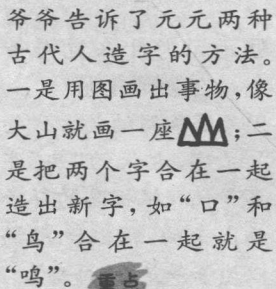 爷爷告诉了元元两种
古代人造字的方法。
一是用图画出事物,像
大山就画一座;二
是把两个字合在一起
造出新字,如“口”和
“鸟”合在一起就是
“鸣”。 重点